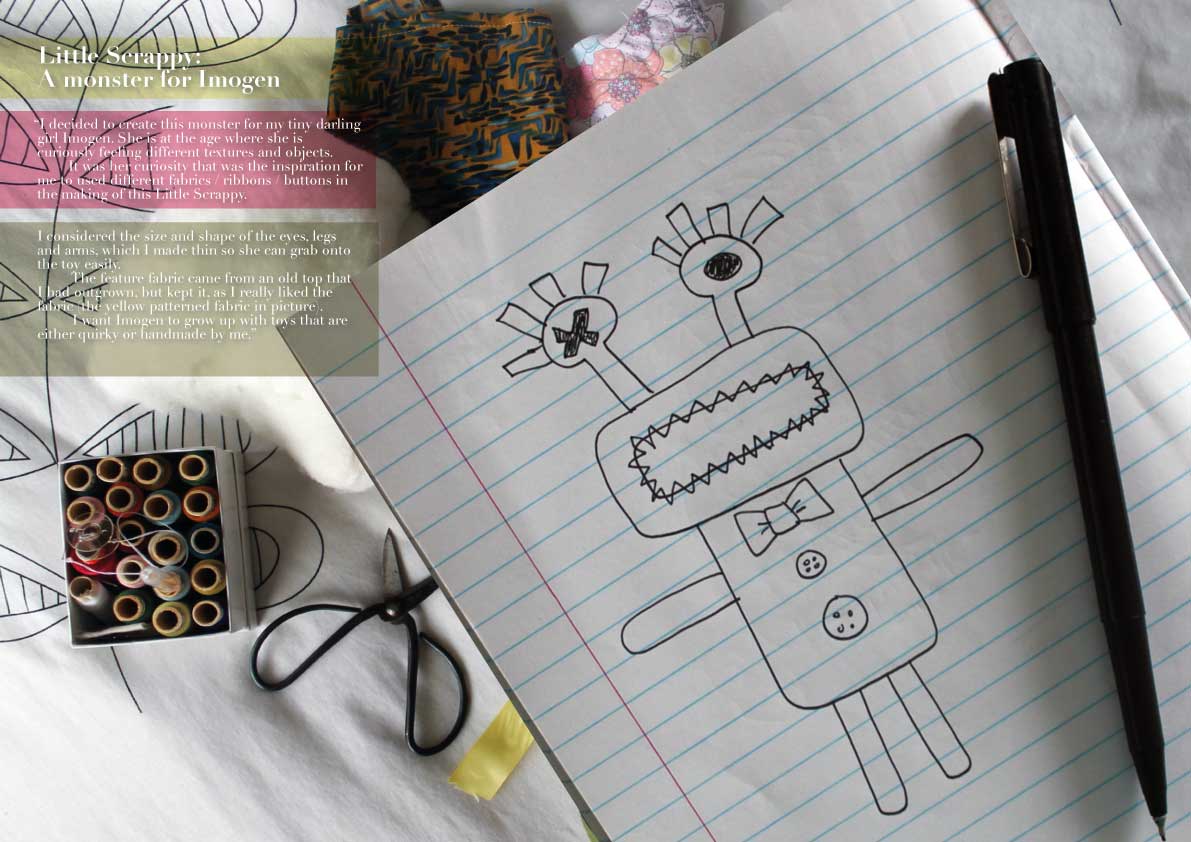 Little Scrappy:
A monster for Imogen
"I decided to create this monster for my tiny darling
girl Imogen. She is at the age where she is
curiously feeling different textures and objects.
It was her curiosity that was the inspiration for
me to used different fabrics / ribbons / buttons in
the making of this Little Scrappy.
I considered the size and shape of the eyes, legs
and arms, which I made thin so she can grab onto
the toy easily.
The feature fabric came from an old top that
I had outgrown, but kept it, as I really liked the
fabric (the yellow patterned fabric in picture).
I want Imogen to grow up with toys that are
either quirky or handmade by me."